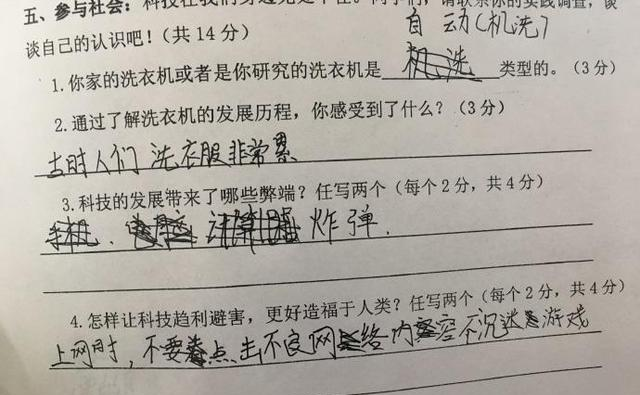 五、参与社会：科技在我们身边无处不在。同学们，请联系你的实践调查，谈
谈自己的认识吧！(共14分)
自动(机洗)
1.你家的洗衣机或者是你研究的洗衣机是 机洗 类型的。(3分)
2.通过了解洗衣机的发展历程，你感受到了什么？(3分)
古时人们洗衣服非常累
3.科技的发展带来了哪些弊端？任写两个(每个2分，共4分)
手机、计算机 炸弹.
4.怎样让科技趋利避害，更好造福于人类？任写两个(每个2分，共4分)
上网时，不要点击不良网络内容不沉迷游戏